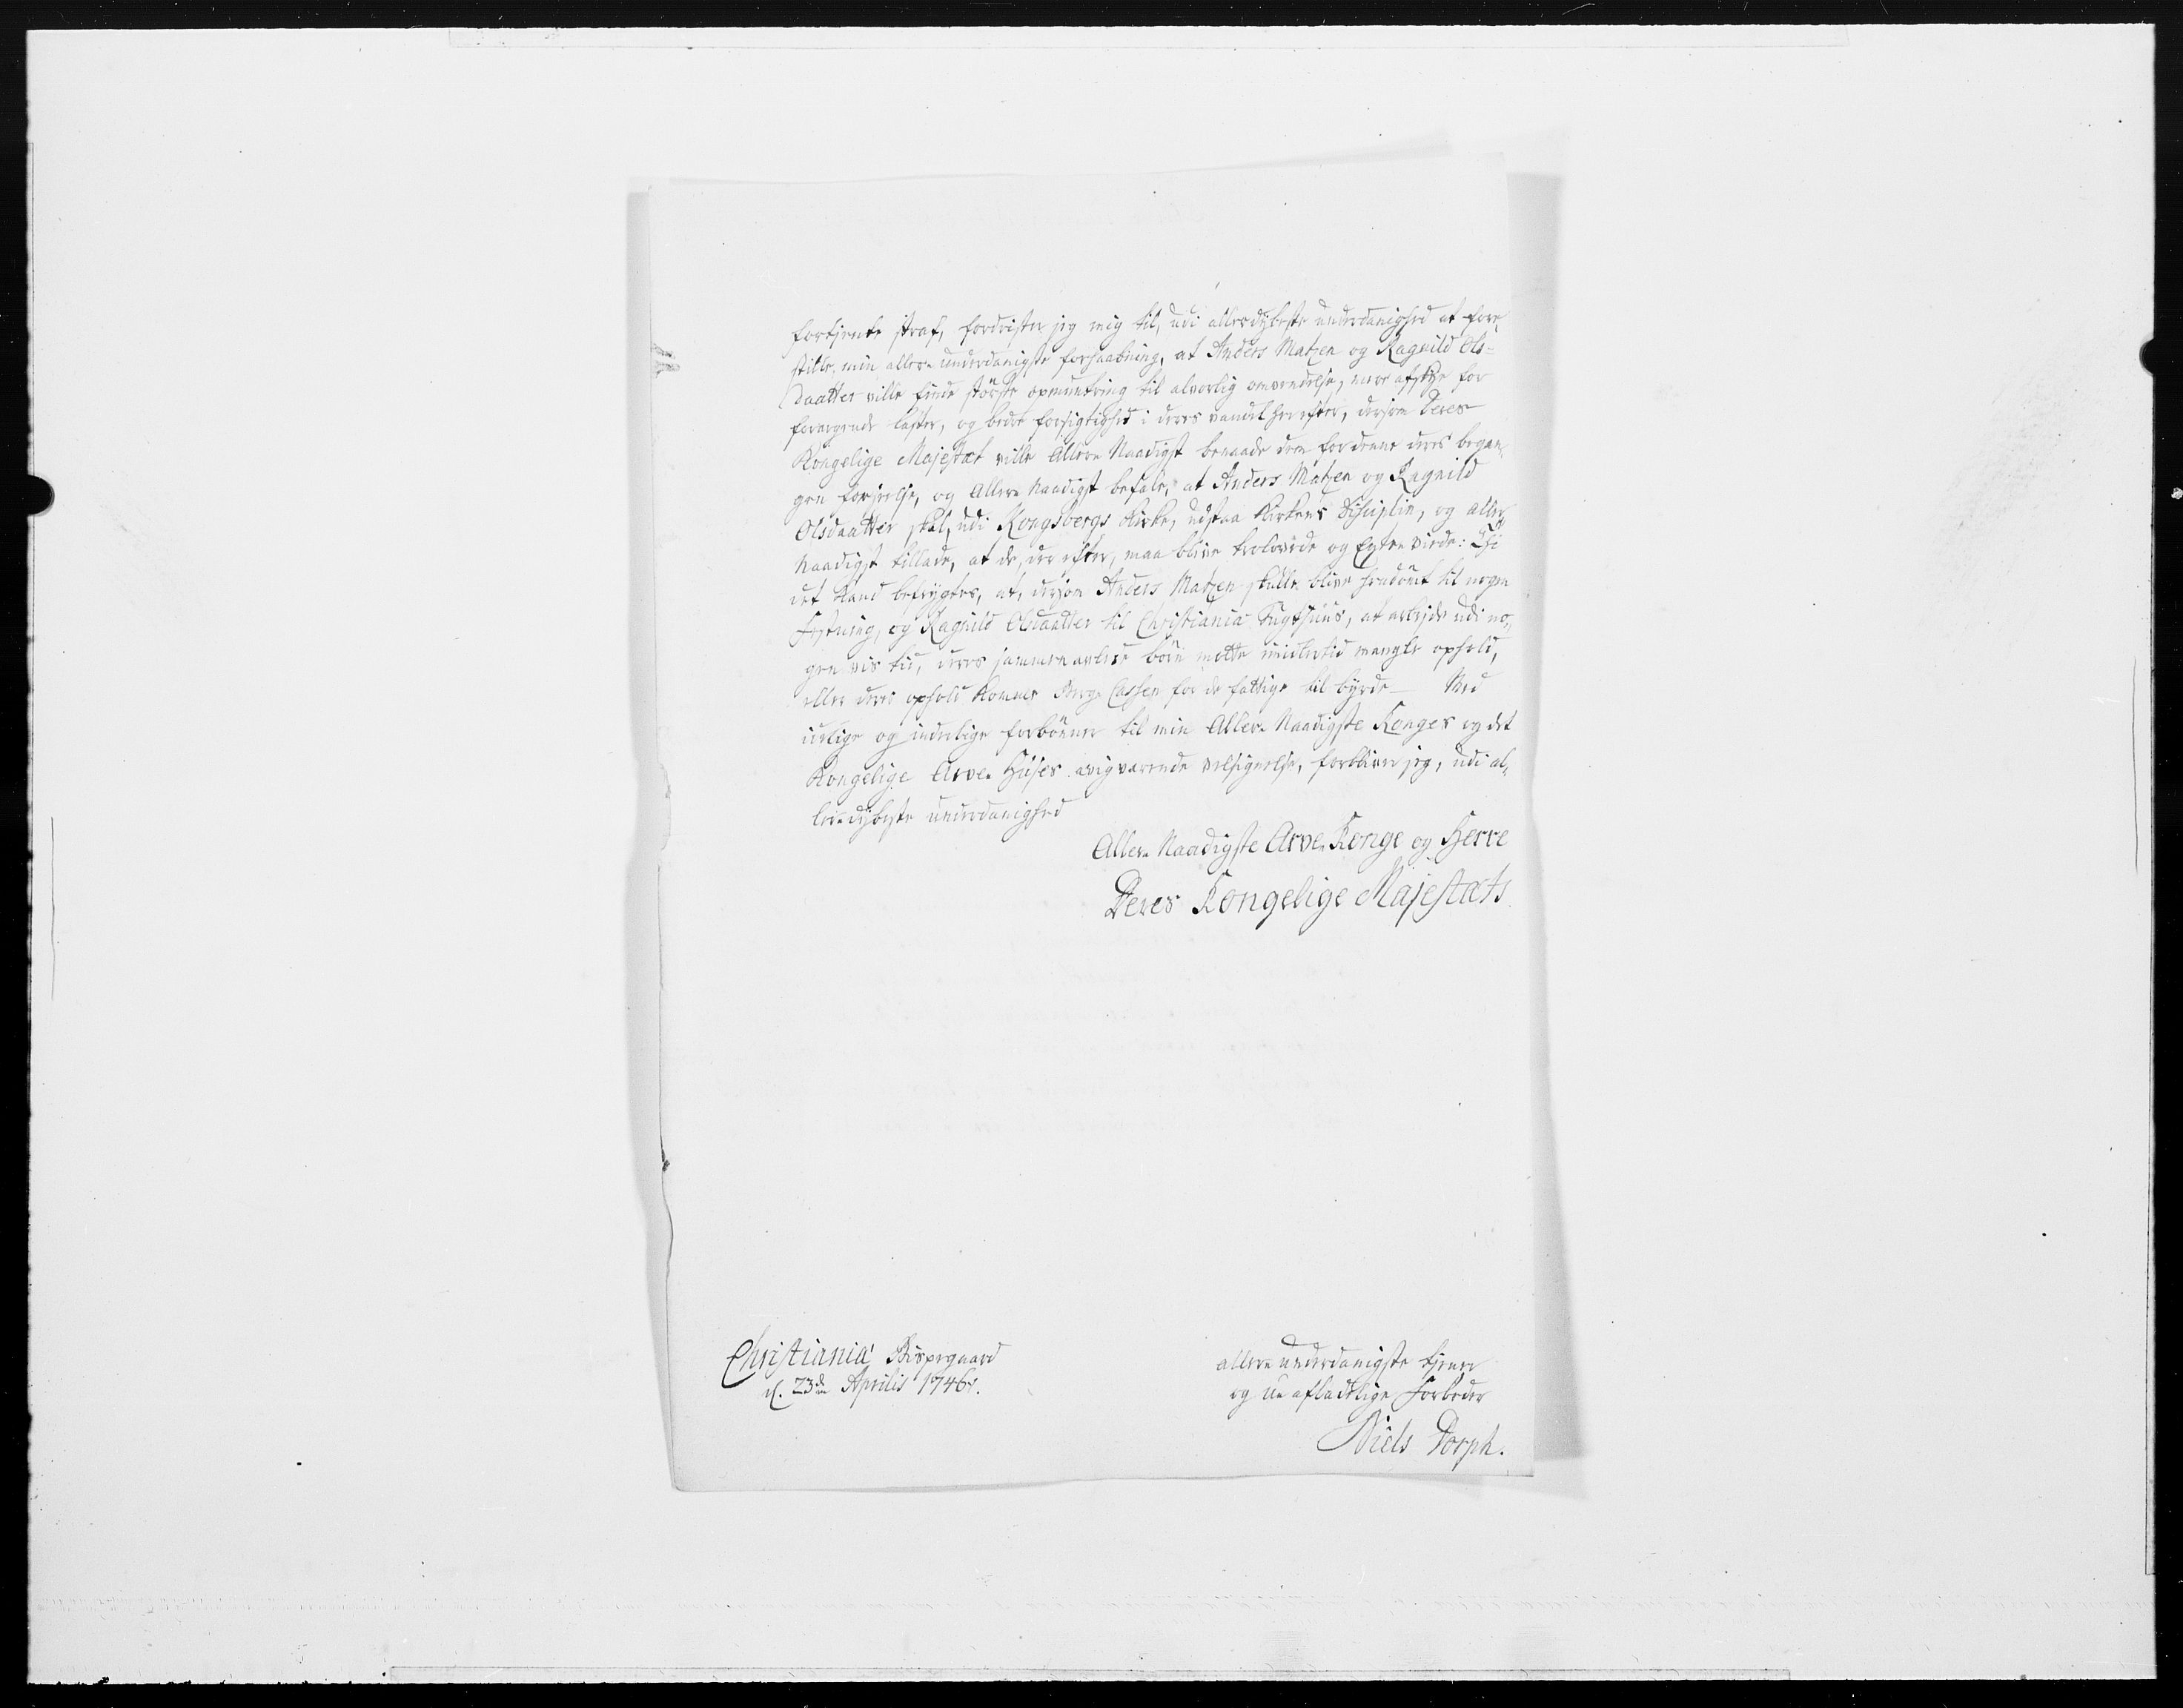 fortjente straf, fordrister jeg mig til, udi allerdybeste underdanighed at fore,
stille, min aller-underdanigste forhaabning, at Anders Matzen og Ragnild Ols=
daatter ville finde störste opmuntring til alvorlig omvendelse, mere afskye for
forargende laster, og bedre forsigtighed i deres vandel herefter, dersom Deres
Kongelige Majestæt ville Allere Naadigst benaade dem for denne deres began,
gen forseelse, og Allere Naadigst befale, at Anders Matzen og Ragnild
Olsdaatter skal, udi Kongsbergs Kirke, udstaa Kirkens Disciplin, og aller,
Naadigst tillade, at de, der efter, maa blive trolovede og Egteviede: Thi
det kand befrygtes, at, dersom Anders Matzen skulle blive hendömt til nogen
Festning, og Ragnild Olsdaatter til Christiania Tugthuus, at arbejde udi no,
gen vis tid, deres sammenavlede börn motte imidlertid mangle ophold,
eller deres ophold komme Berg-Cassen for de fattige til byrde — Med
idelige og inderlige forbönner til min Aller-Naadigste Konges og det
Kongelige Arve-Huses ævigvarende velsignelse, forbliver jeg, udi al,
leredybeste underdanighed
Aller-Naadigste Arve-Konge og Herre
Deres Kongelige Majestæts
Christiania Bispegaard
d. 23de Aprilis 1746.
allere underdanigste tjener
og uafladelige Forbeder
Niels Dorph.